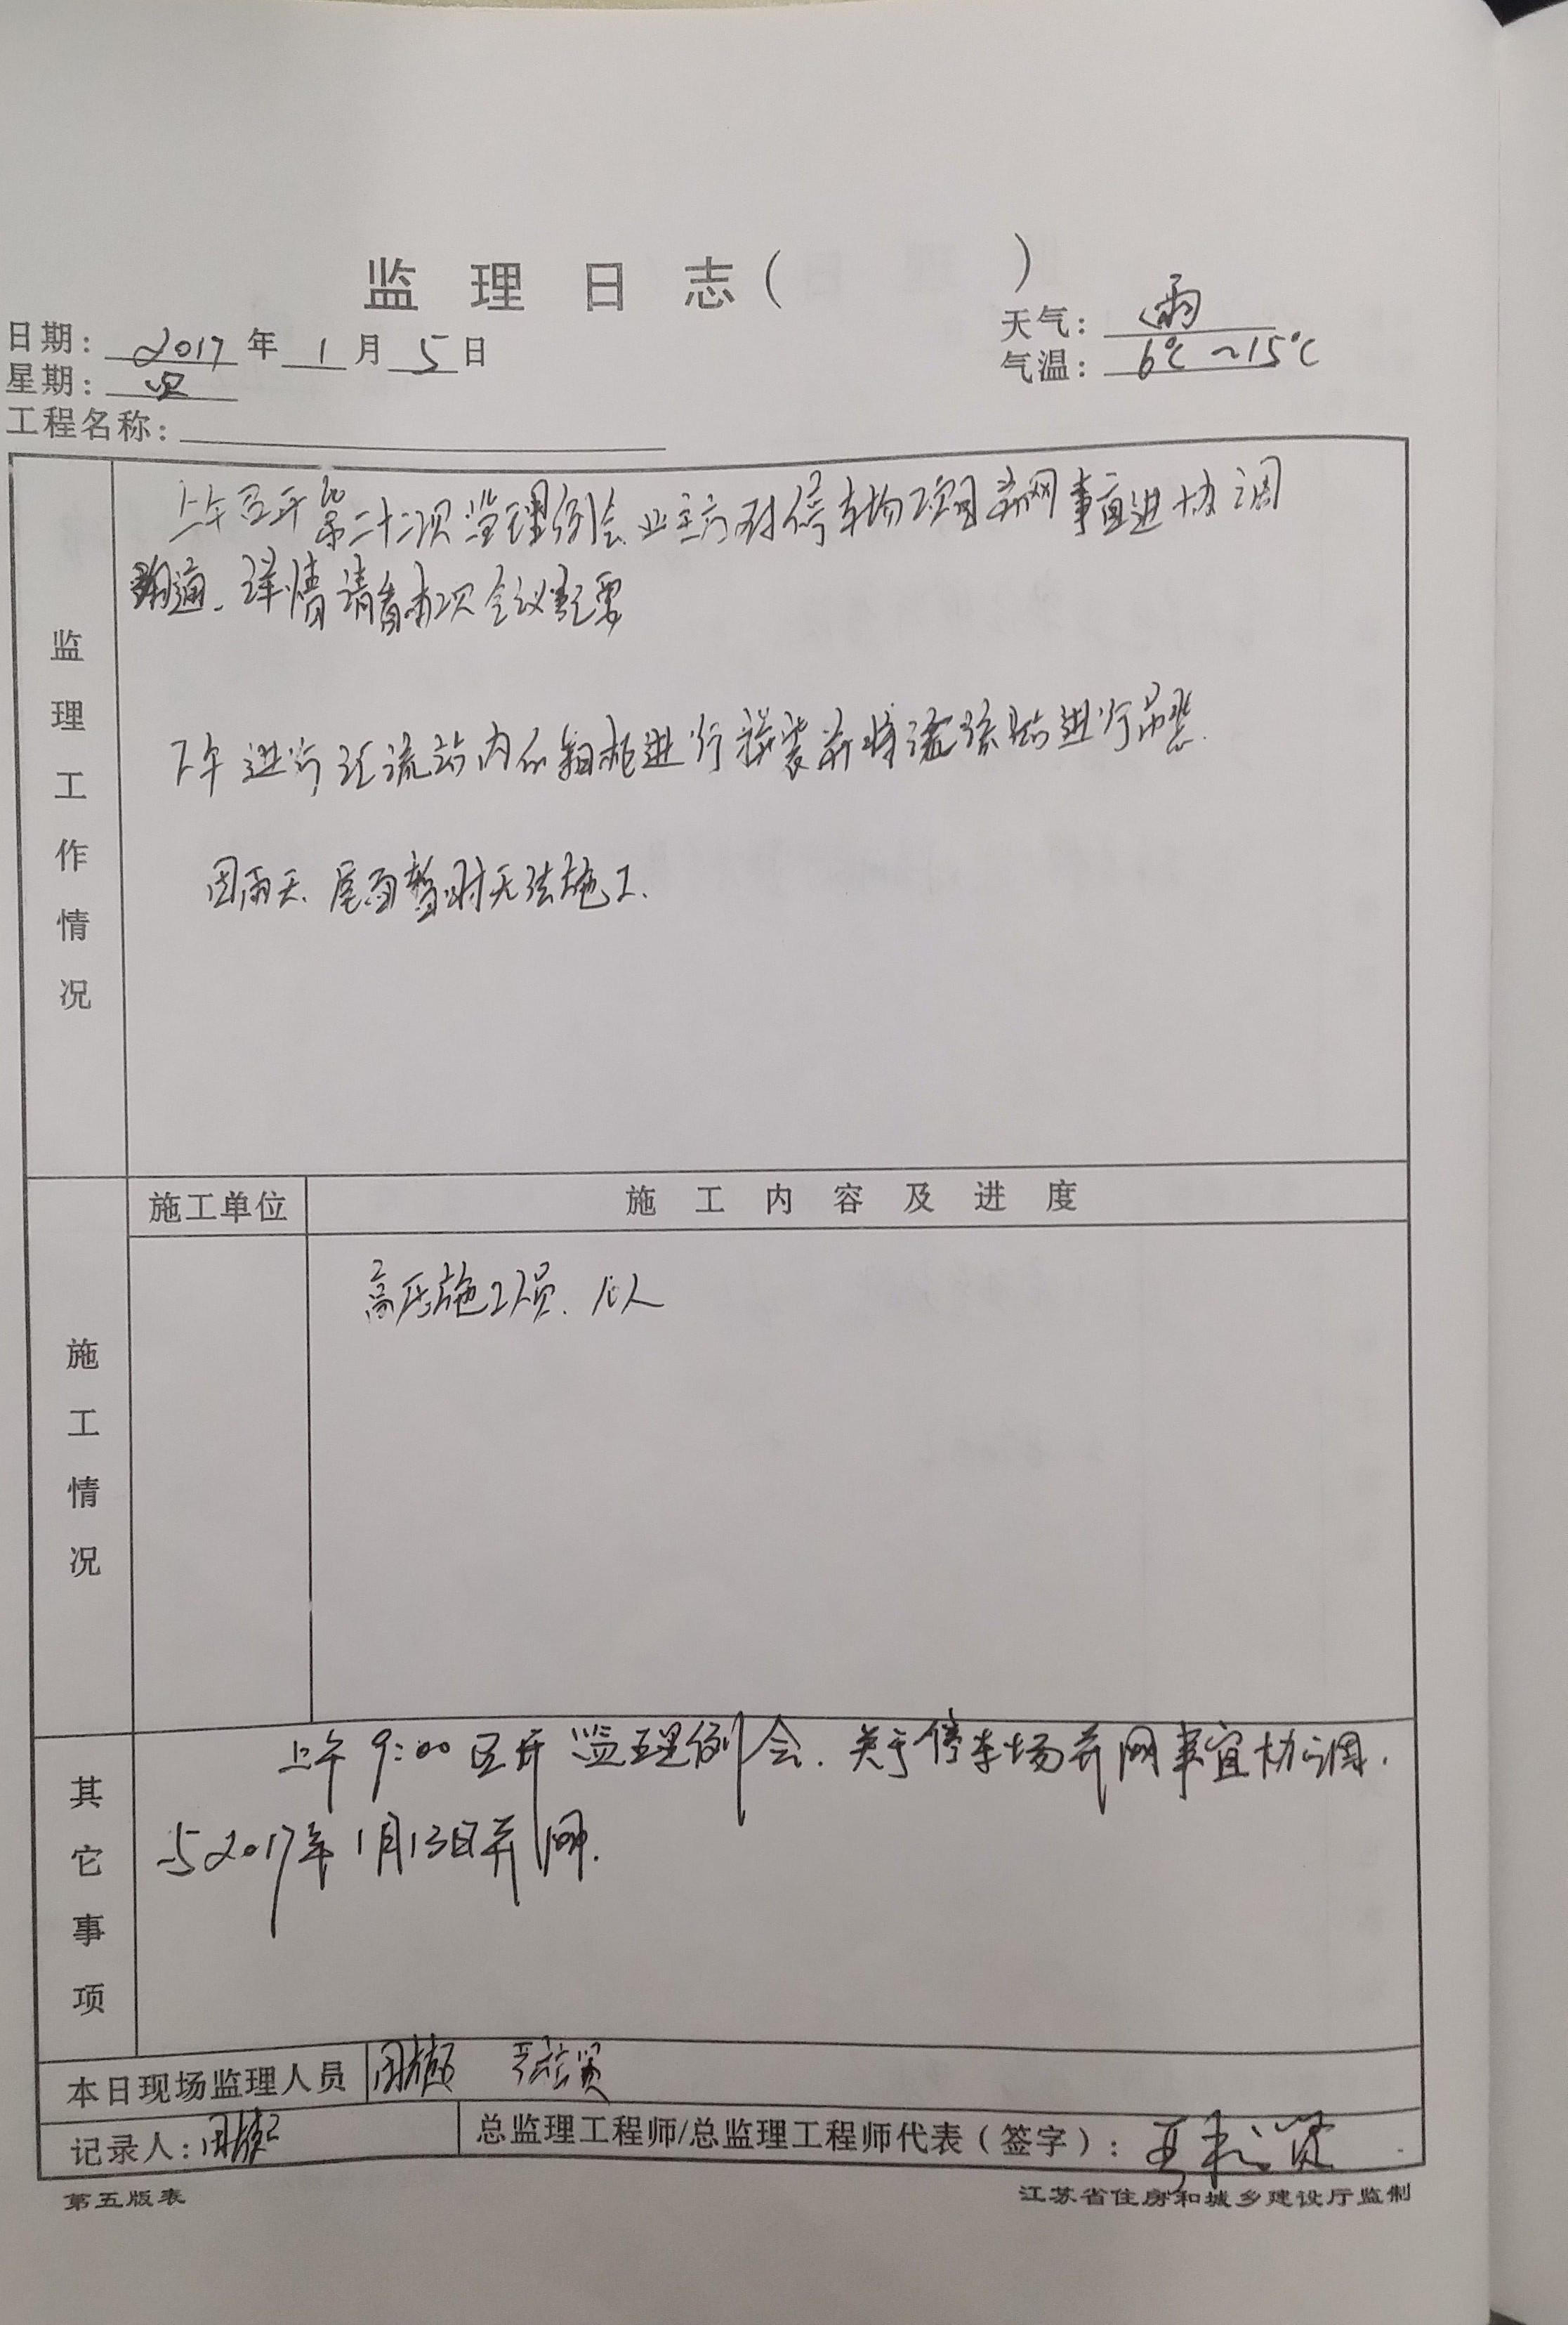 监理日志( )
日期: 2017 年 1 月 5 日
天气: 雨
星期: 四
气温: 6℃ ~15℃
工程名称:
监理工作情况
上午召开第二十二次监理例会.业主方对停车场项目并网事宜进协调
沟通.详情请看本次会议纪要
下午进行汇流站内的箱柜进行拼装并将逐流站进行吊装.
因雨天.屋面暂时无法施工.
施工情况
施工单位
施工内容及进度
高压施工人员. 人
其它事项
上午9:00召开监理例会.关于停车场并网事宜协调.
与2017年1月13日并网.
本日现场监理人员
记录人:
总监理工程师/总监理工程师代表(签字):
第五版表
江苏省住房和城乡建设厅监制